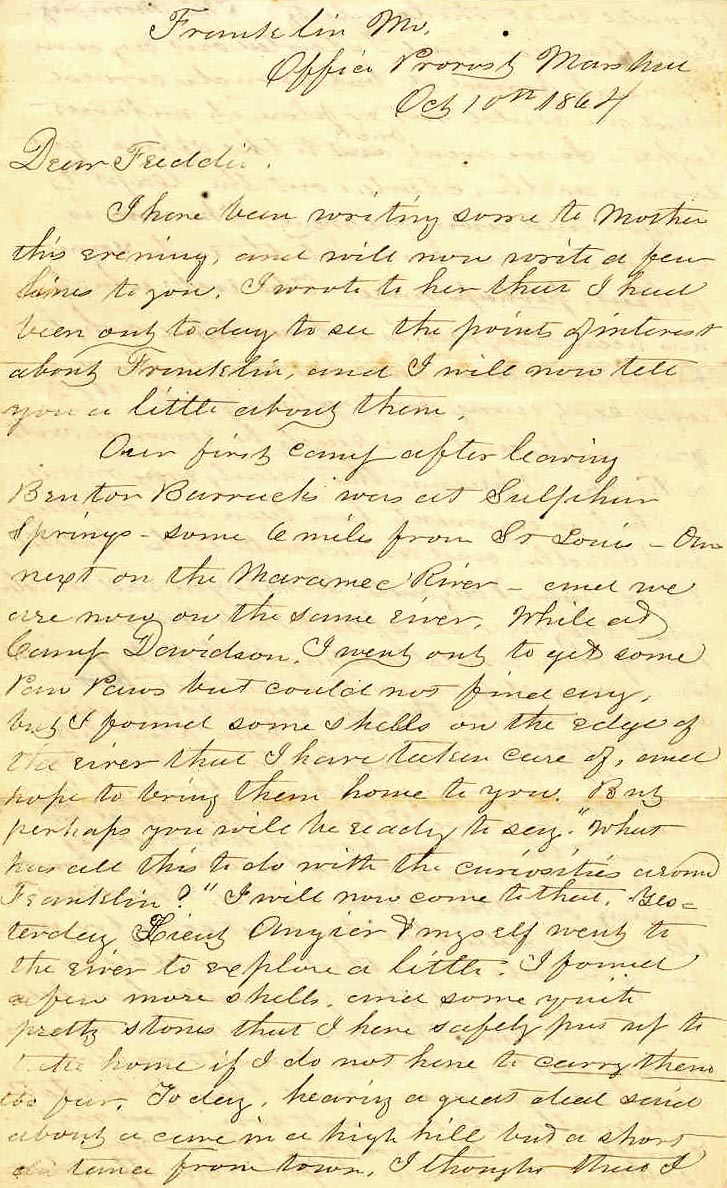 Franklin Mo.
Office Provost Marshal
Oct 10th 1864
Dear Freddie.
I have been writing some to Mother
this evening, and will now write a few
lines to you. I wrote to her that I had
been out to day to see the points of interest
about Franklin, and I will now tell
you a little about them.
Our first camp after leaving
Benton Barracks was at Sulphur
Springs - some 6 miles from St Louis - Our
next on the Maramec River - and we
are now on the same river. While at
Camp Davidson, I went out to get some
Paw Paws but could not find any,
but I found some shells on the edge of
the river that I have taken care of, and
hope to bring them home to you. But
perhaps you will be ready to say. "What
has all this to do with the curiosities around
Franklin?" I will now come to that. Yes-
terday Lieut Angier & myself went to
the river to explore a little. I found
a few more shells, and some quite
pretty stones that I have safely put up to
take home if I do not have to carry them
too far. To day, hearing a great deal said
about a cave in a high hill but a short
distance from town, I thought that I